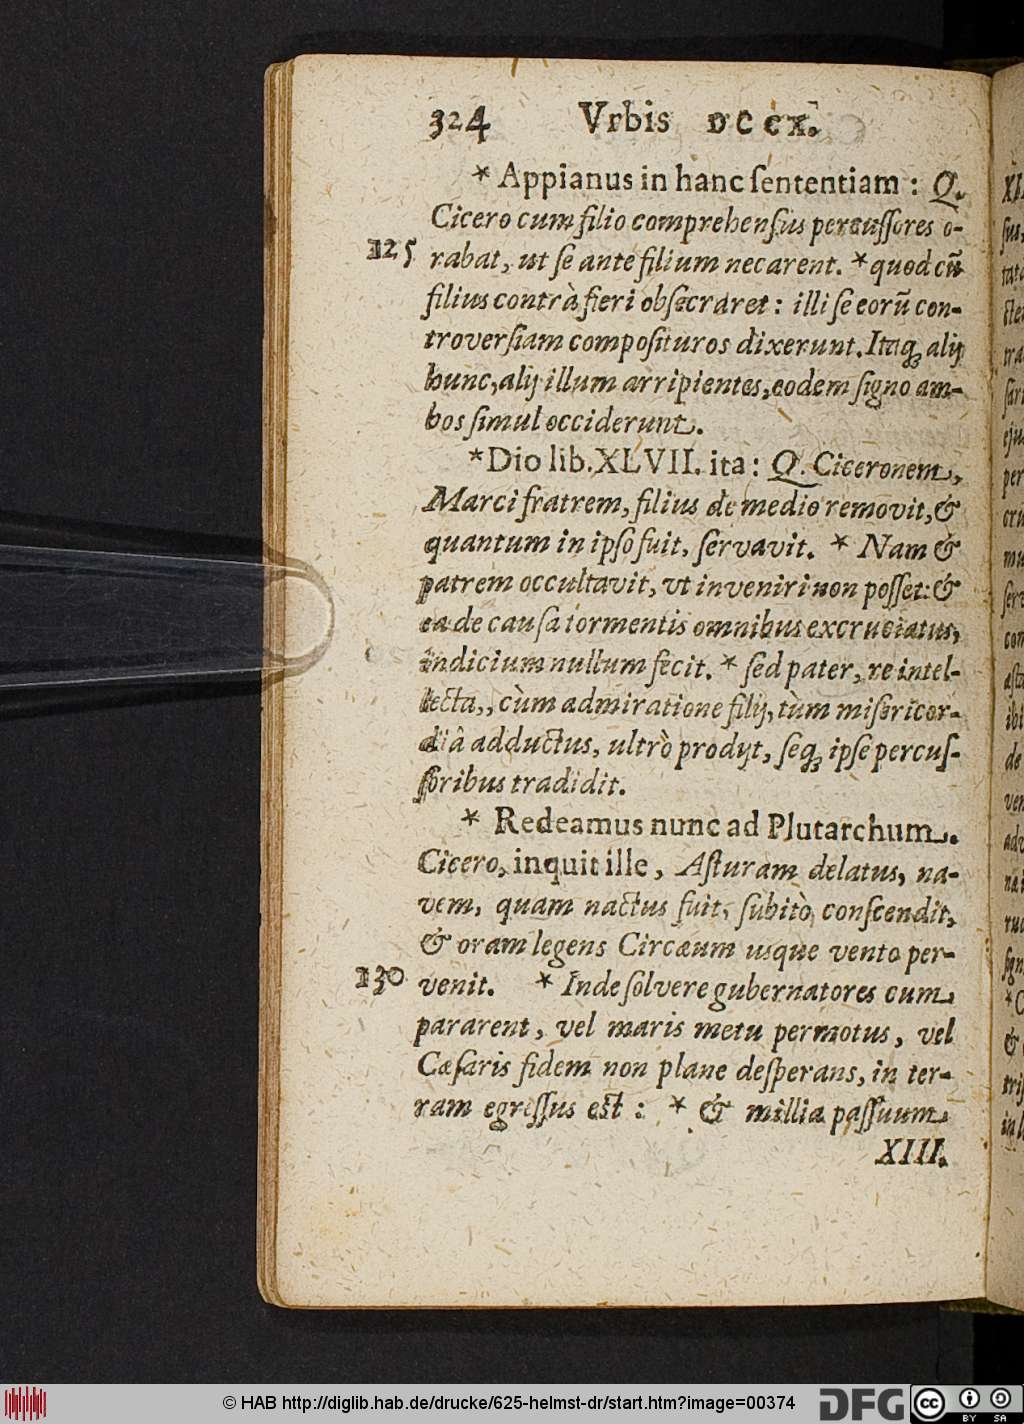 324 Vrbis DCCX.
* Appianus in hanc ſententiam : Q.
Cicero cum filio comprehenſus percuſſores o-
125 rabat, ut ſe ante filium necarent. * quod cũ
filius contrà fieri obſecraret : illi ſe eorũ con-
troverſiam compoſituros dixerunt. Itaq; alij
hunc, alij illum arripientes, eodem ſigno am-
bos ſimul occiderunt.
* Dio lib. XLVII. ita : Q. Ciceronem,
Marci fratrem, filius de medio removit, &
quantum in ipſo fuit, ſervavit. * Nam &
patrem occultavit, vt inveniri non poſſet: &
ea de cauſa tormentis omnibus excruciatus,
indicium nullum fecit. * ſed pater, re intel-
lecta,, cùm admiratione filij, tùm miſericor-
diâ adductus, ultrò prodijt, ſeq; ipſe percuſ-
ſoribus tradidit.
* Redeamus nunc ad Plutarchum.
Cicero, inquit ille, Aſturam delatus, na-
vem, quam nactus fuit, ſubitò conſcendit,
& oram legens Circæum usque vento per-
130 venit. * Inde ſolvere gubernatores cum
pararent, vel maris metu permotus, vel
Cæſaris fidem non plane deſperans, in ter-
ram egreſſus est : * & millia paſſuum
XIII.
© HAB http://diglib.hab.de/drucke/625-helmst-dr/start.htm?image=00374
DFG
cc BY SA